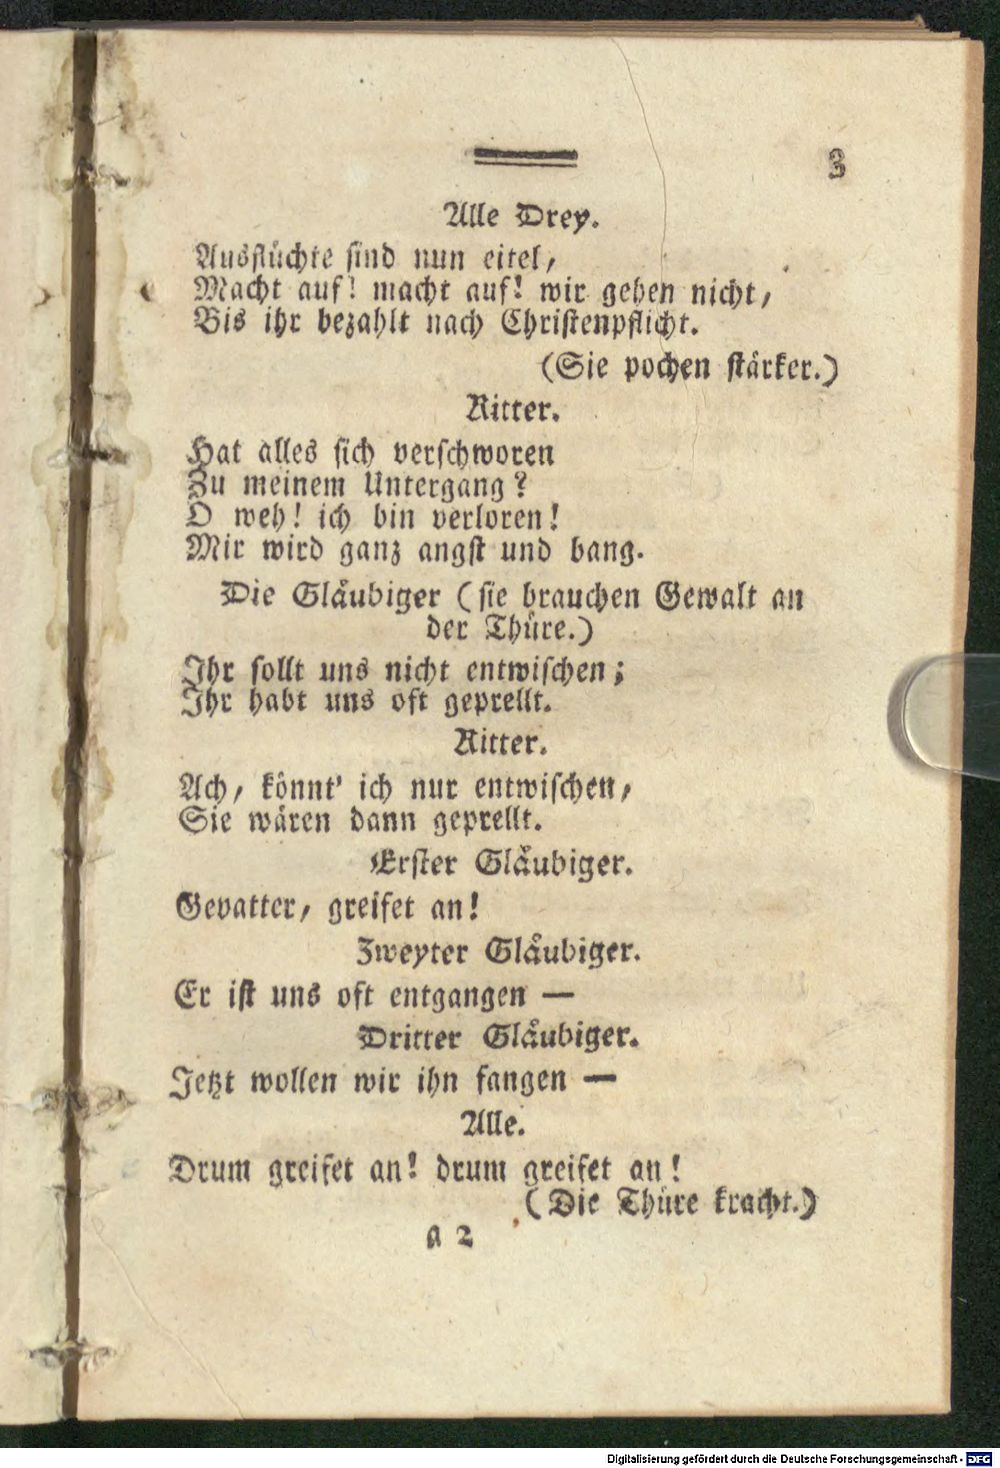 3
Alle Drey.
Ausflüchte sind nun eitel,
Macht auf! macht auf! wir gehen nicht,
Bis ihr bezahlt nach Christenpflicht.
(Sie pochen stärker.)
Ritter.
Hat alles sich verschworen
Zu meinem Untergang?
O weh! ich bin verloren!
Mir wird ganz angst und bang.
Die Gläubiger (sie brauchen Gewalt an
der Thüre.)
Ihr sollt uns nicht entwischen;
Ihr habt uns oft geprellt.
Ritter.
Ach, könnt' ich nur entwischen,
Sie wären dann geprellt.
Erster Gläubiger.
Gevatter, greifet an!
Zweyter Gläubiger.
Er ist uns oft entgangen —
Dritter Gläubiger.
Jetzt wollen wir ihn fangen —
Alle.
Drum greifet an! drum greifet an!
(Die Thüre kracht.)
a 2
Digitalisierung gefördert durch die Deutsche Forschungsgemeinschaft - DFG